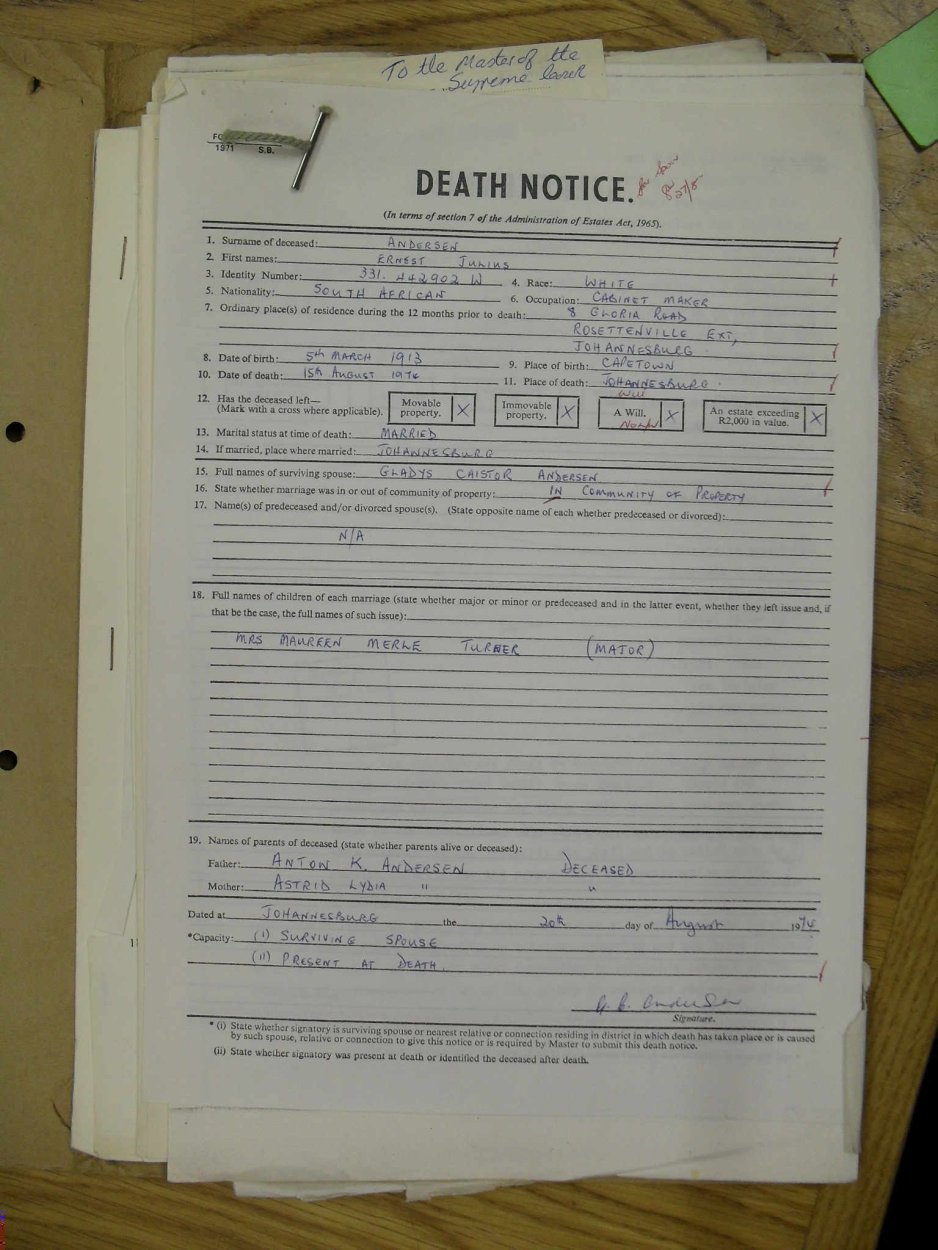 To the Master of the
Supreme Court
1971 S.B.
DEATH NOTICE.
(In terms of section 7 of the Administration of Estates Act, 1965).
1. Surname of deceased: ANDERSEN
2. First names: ERNEST JULIUS
3. Identity Number: 331. 442902 W 4. Race: WHITE
5. Nationality: SOUTH AFRICAN 6. Occupation: CABINET MAKER
7. Ordinary place(s) of residence during the 12 months prior to death: 8 GLORIA ROAD
ROSETTENVILLE EXT,
JOHANNESBURG
8. Date of birth: 5th MARCH 1913 9. Place of birth: CAPETOWN
10. Date of death: 15th AUGUST 1976 11. Place of death: JOHANNESBURG.
12. Has the deceased left—
(Mark with a cross where applicable). Movable property. X Immovable property. X A Will. X An estate exceeding R2,000 in value. X
Will
13. Marital status at time of death: MARRIED
14. If married, place where married: JOHANNESBURG
15. Full names of surviving spouse: GLADYS CAISTOR ANDERSEN
16. State whether marriage was in or out of community of property: IN COMMUNITY OF PROPERTY
17. Name(s) of predeceased and/or divorced spouse(s). (State opposite name of each whether predeceased or divorced):
N/A
18. Full names of children of each marriage (state whether major or minor or predeceased and in the latter event, whether they left issue and, if
that be the case, the full names of such issue):
MRS MAUREEN MERLE TURNER (MAJOR)
19. Names of parents of deceased (state whether parents alive or deceased):
Father: ANTON K. ANDERSEN DECEASED
Mother: ASTRID LYDIA " "
Dated at JOHANNESBURG the 20th day of August 1976
*Capacity: (i) SURVIVING SPOUSE
(ii) PRESENT AT DEATH.
Signature.
* (i) State whether signatory is surviving spouse or nearest relative or connection residing in district in which death has taken place or is caused
by such spouse, relative or connection to give this notice or is required by Master to submit this death notice.
(ii) State whether signatory was present at death or identified the deceased after death.